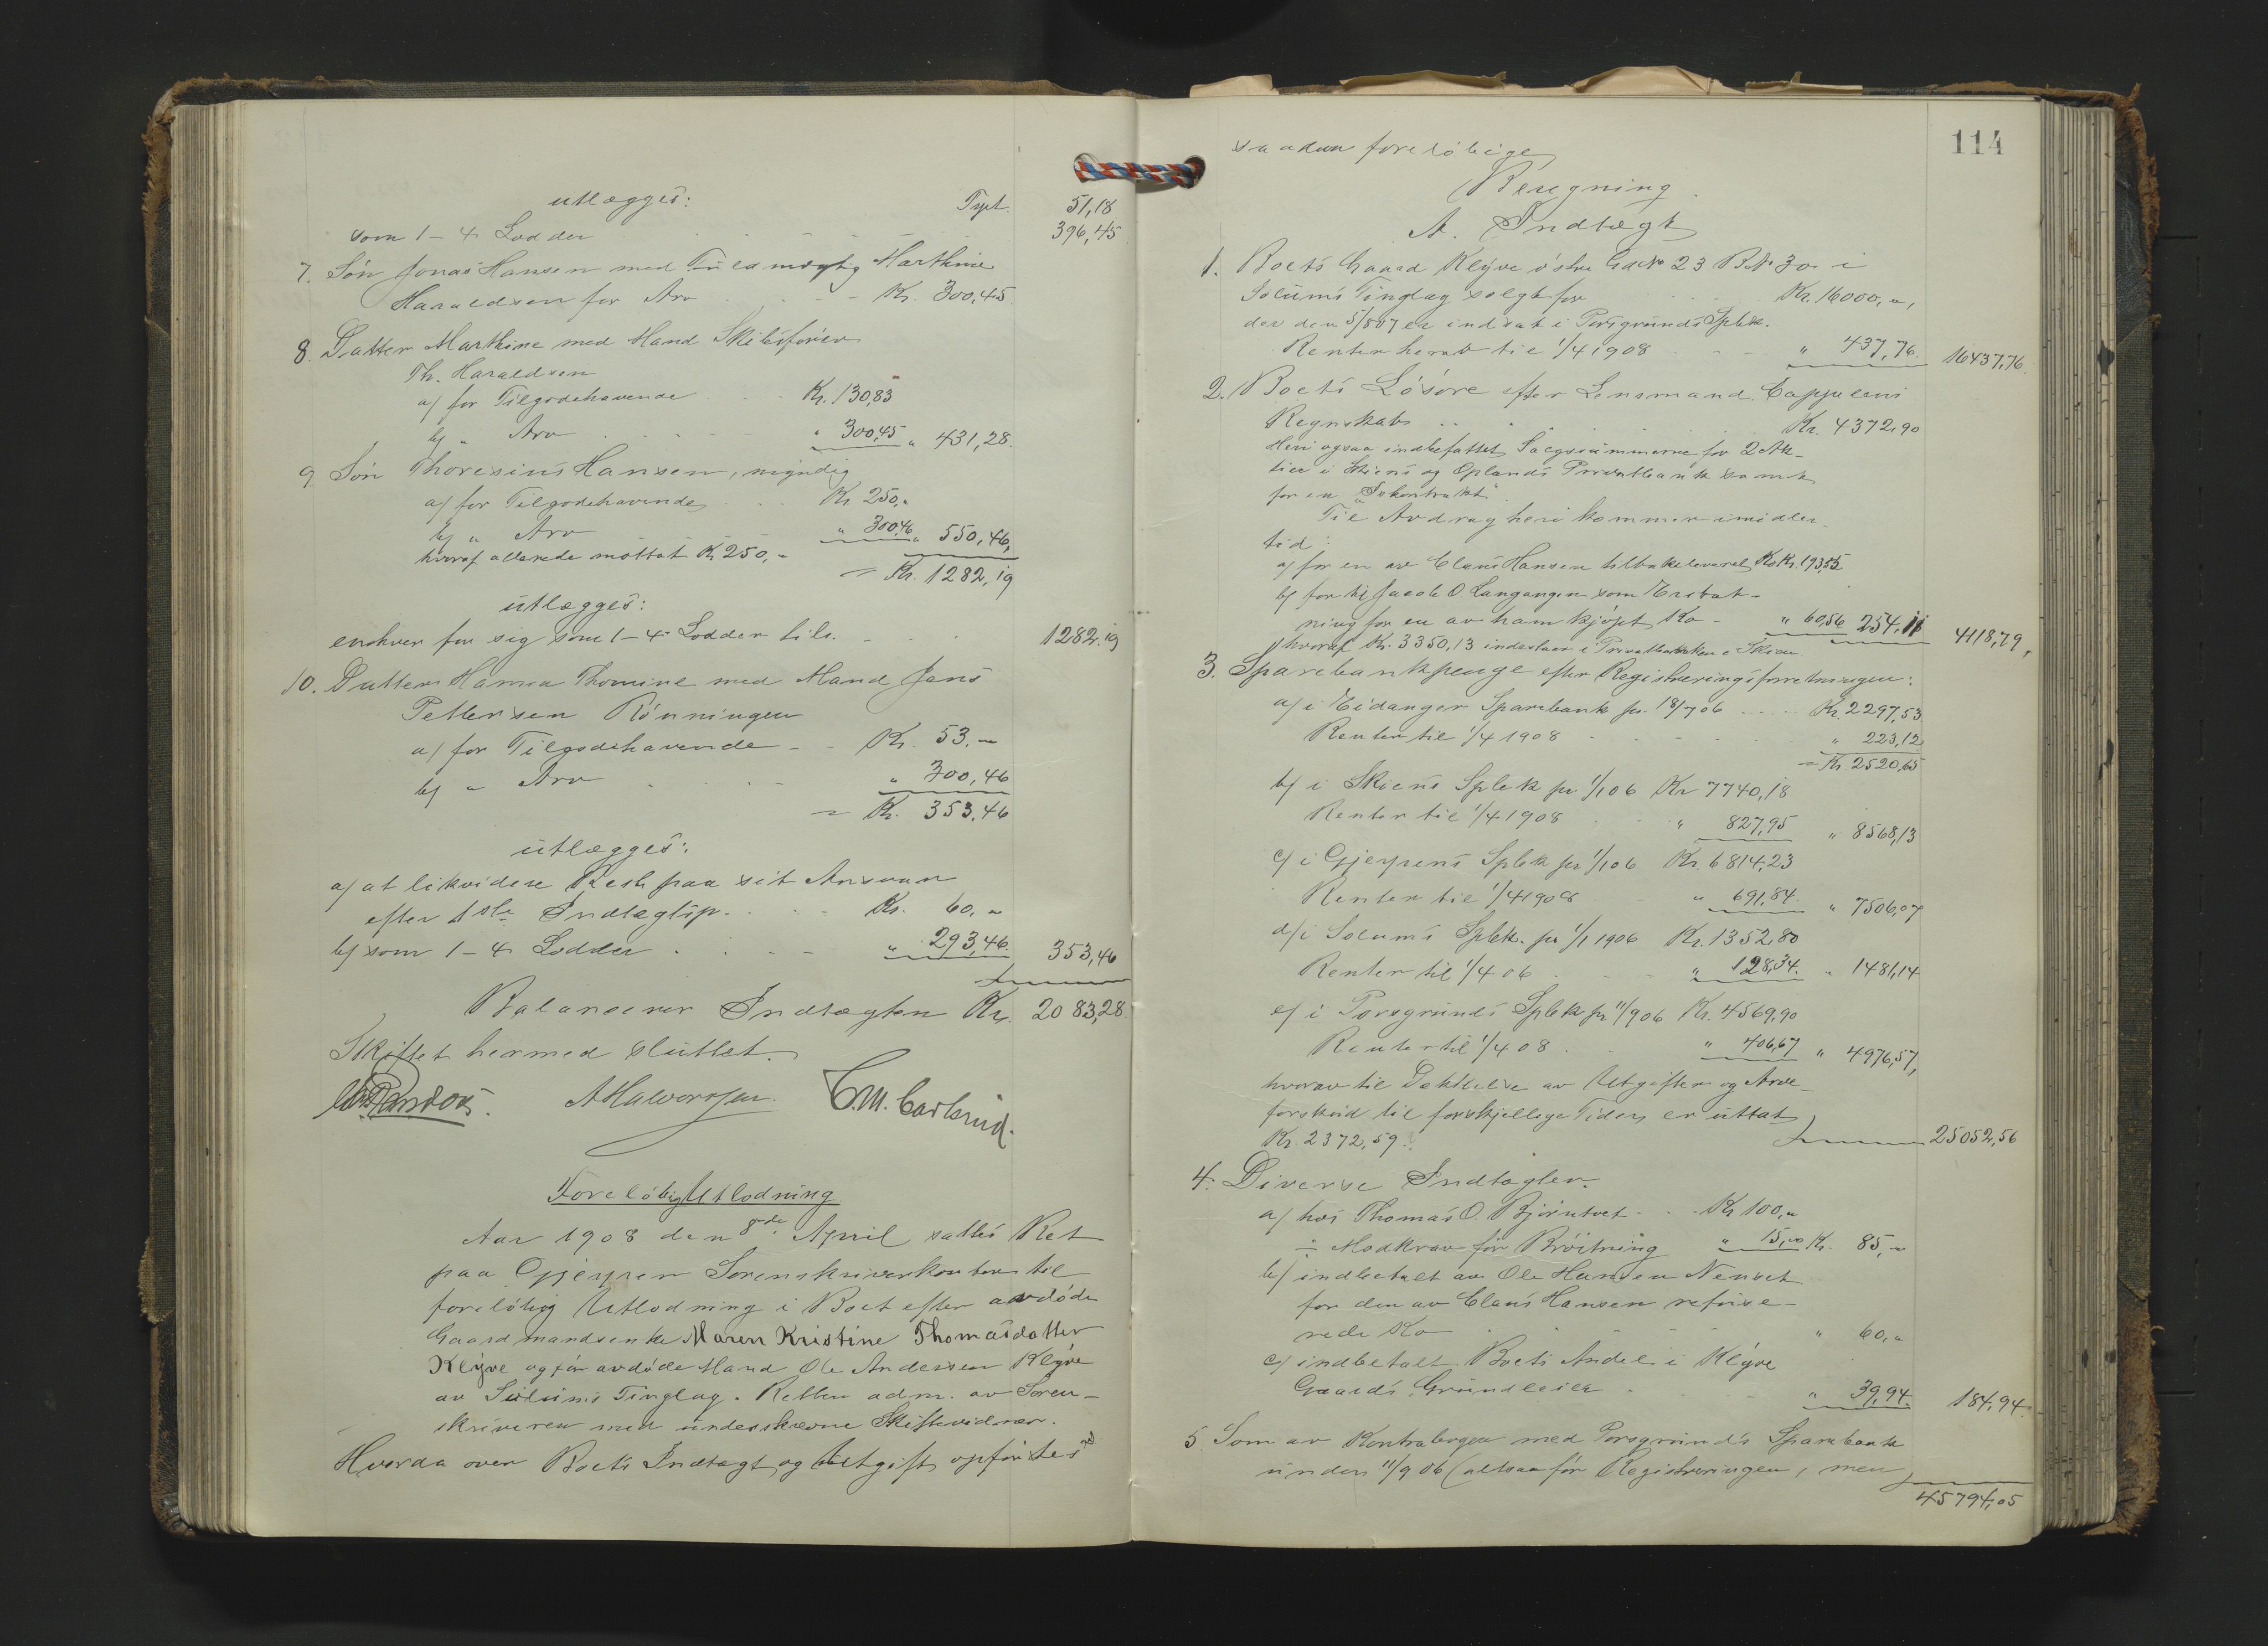 utlægges: Tspt. 51,18
som 1 - 4 Lodder 396,45
7. Søn Jonas Hansen med Fuldmægtig Marthine
Haraldsen for Arv Kr. 300,45
8. Datter Marthine med Mand Skibsfører
Th. Haraldsen
a/ for Tilgodehavende Kr. 130,83
b/ " Arv " 300,45 " 431,28.
9. Søn Thoresius Hansen, myndig
a/ for Tilgodehavende Kr. 250,"
b/ " Arv " 300,46 " 550,46,
hvoraf allerede mottat Kr. 250,-
= Kr. 1282,19
utlægges:
enhver for sig som 1-4 Lodder tils. 1282.19
10. Datter Hanna Thomine med Mand Jens
Pettersen Rønningen
a/ for Tilgodehavende Kr. 53,-
b/ " Arv " 300,46
= Kr. 353,46
utlægges:
a/ at likvidere Rest paa sit Ansvar
efter 1ste Indtægtsp. Kr. 60,"
b/ som 1-4 Lodder " 293,46. 353,46
Balancerer Indtægten Kr. 2083,28.
Skiftet hermed sluttet.
AHalvorsen. C.M. Carlsrud.
Foreløbig Utlodning.
Aar 1908 den 8de April sattes Ret
paa Gjerpen Sorenskriverkontor til
foreløbig Utlodning i Boet efter avdøde
Gaardmandsenke Maren Kristine Thomasdatter
Klyve og før avdøde Mand Ole Andersen Klyve
av Solums Tinglag. Retten adm. av Soren-
skriveren med underskrevne Skiftevidner.
Hvorda over Boets Indtægt og Utgift opførtes
114
saadan foreløbige
Beregning.
A. Indtægt
1. Boets Gaard Klyve østre GdNo 23 BNo 30 i
Solums Tinglag solgt for Kr. 16000,",
der den 5/8 07 er indsat i Porsgrunds Spbk.
Renter herav til 1/4 1908 " 437,76. 16437,76.
2. Boets Løsøre efter Lensmand Cappelens
Regnskab Kr. 4372,90
Heri ogsaa indbefattet Salgssummerne for 2 Ak-
tier i Skiens og Oplands Privatbank samt
for en "Iskontrakt".
Til Avdrag heri kommer imidler-
tid:
a/ for en av Claus Hansen tilbakelevaret Ko Kr. 193,55
b/ for til Jacob O Langangen som Erstat-
ning for en av ham kjøpt Ko " 60,56 254,11 4118,79,
hvoraf Kr. 3350,13 indestaar i Privatbanken i Skien.
3. Sparebankpenge efter Registreringsforretningen:
a/ i Eidanger Sparebank pr. 18/7 06 Kr. 2297,53
Renter til 1/4 1908 " 223,12
= Kr. 2520,65
b/ i Skiens Spbk pr 1/1 06 Kr 7740,18
Renter til 1/4 1908 " 827,95 " 8568,13
c/ i Gjerpens Spbk pr 1/1 06 Kr. 6814,23
Renter til 1/4 1908 " 691,84. " 7506,07
d/ i Solums Spbk. pr 1/1 1906 Kr. 1352,80
Renter til 1/4 06 " 128,34. " 1481,14
e/ i Porsgrunds Spbk pr 11/9 06 Kr. 4569,90
Renter til 1/4 08 " 406,67 " 4976,57,
hvorav til Dækkelse av Utgifter og Arve-
forskud til forskjellige Tider er uttat
Kr. 2372,59. 25052,56
4. Diverse Indtægter.
a/ hos Thomas O. Bjørntvet Kr 100,"
÷ Modkrav for Brøitning " 15,00 Kr. 85,"
b/ indbetalt av Ole Hansen Nenset
for den av Claus Hansen refuse-
rede Ko " 60,"
c/ indbetalt Boets Andel i Klyve
Gaards Grundleier " 39,94. 184,94.
5. Som av Kontrabogen med Porsgrunds Sparebank
under 11/9 06 (altsaa før Registreringen, men
45794,05